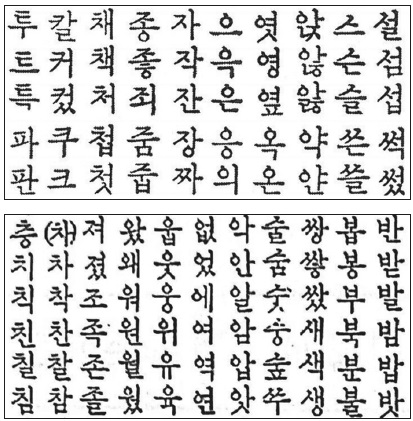 투 칼 채 종 자 으 엿 앉 스 설
트 커 책 좋 작 윽 영 않 슨 섬
특 컸 처 죄 잔 은 옆 앓 슬 섭
파 쿠 첩 줌 장 응 옥 약 쓴 썩
판 크 첫 줍 짜 의 온 얀 쓸 썼
층 (채) 져 왔 웁 없 악 술 쌍 봅 반
치 차 졌 왜 웃 었 안 숨 쌓 봉 받
칙 착 조 워 웅 에 알 숫 쌌 부 발
친 찬 족 원 위 여 암 숭 새 북 밤
칠 찰 존 월 유 역 압 숲 색 분 밥
침 참 졸 웠 육 연 앗 쑤 생 불 밧